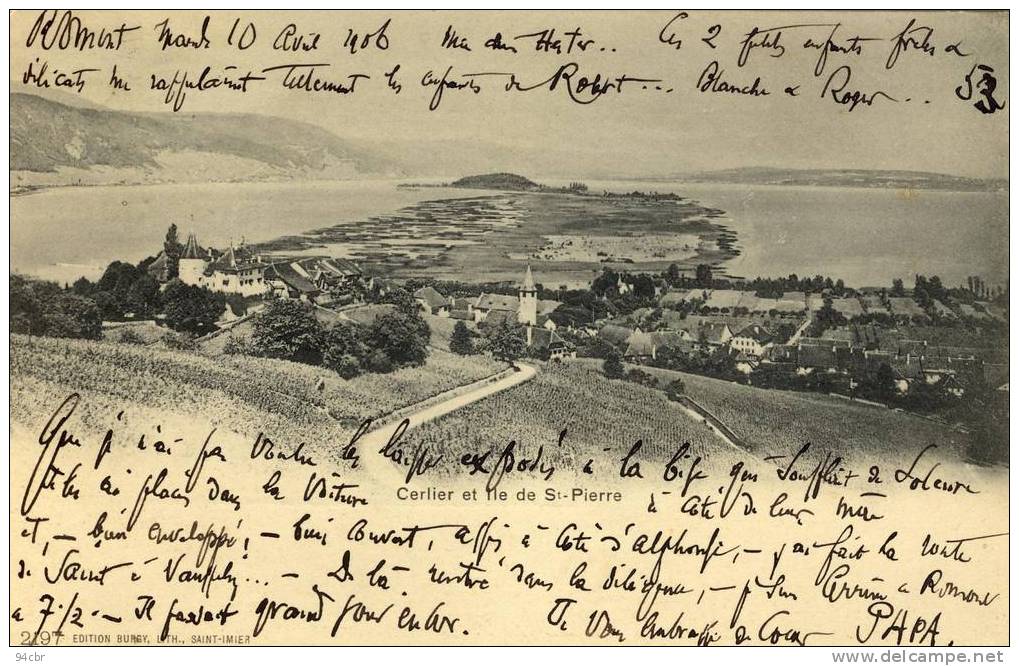 Romont Mardi 10 Avril 1906 Ces 2 petits enfants frêles &
délicats me rappelaient tellement les enfants de Robert... Blanche & Roger..
53
Que je n'ai pas voulu les laisser exposés à la bise qui soufflait de Soleure
placés dans la voiture à côté de leur mère
et, - bien enveloppé, - bien couvert, assis à côté d'Alphonse, - j'ai fait la route
de ... - De là rentré dans la diligence, - je suis arrivé à Romont
à 7 1/2. - Il faisait grand jour encor. Je vous embrasse de coeur PAPA.
Cerlier et Ile de St-Pierre
2197 EDITION BURGY, LITH., SAINT-IMIER
94cbr
http://www.delcampe.net